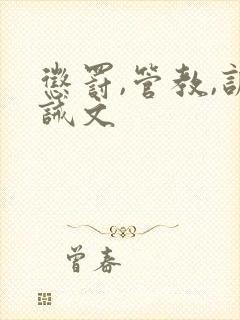 懲罚,管教,訓
誡文
曾春